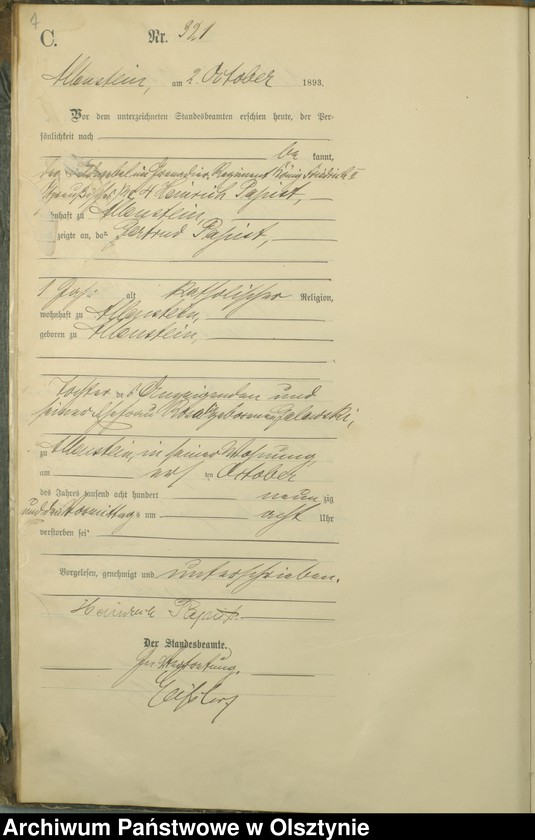 C.
Nr. 321
Allenstein, am 2. October 1893.
Vor dem unterzeichneten Standesbeamten erschien heute, der Per-
sönlichkeit nach
be kannt,
der Feldwebel im Grenadier Regiment König Friedrich II
No 4 Heinrich
wohnhaft zu Allenstein,
zeigte an, daß Gertrud
1 Jahr alt katholischer Religion,
wohnhaft zu Allenstein,
geboren zu Allenstein,
Tochter des Anzeigenden und
seiner Ehefrau Rosa geborenen
zu Allenstein, in seiner Wohnung,
am ersten October
des Jahres tausend acht hundert neun zig
und drei Vormittags um acht Uhr
verstorben sei
Vorgelesen, genehmigt und unterschrieben.
Heinrich
Der Standesbeamte.
In Vertretung.
Archiwum Państwowe w Olsztynie